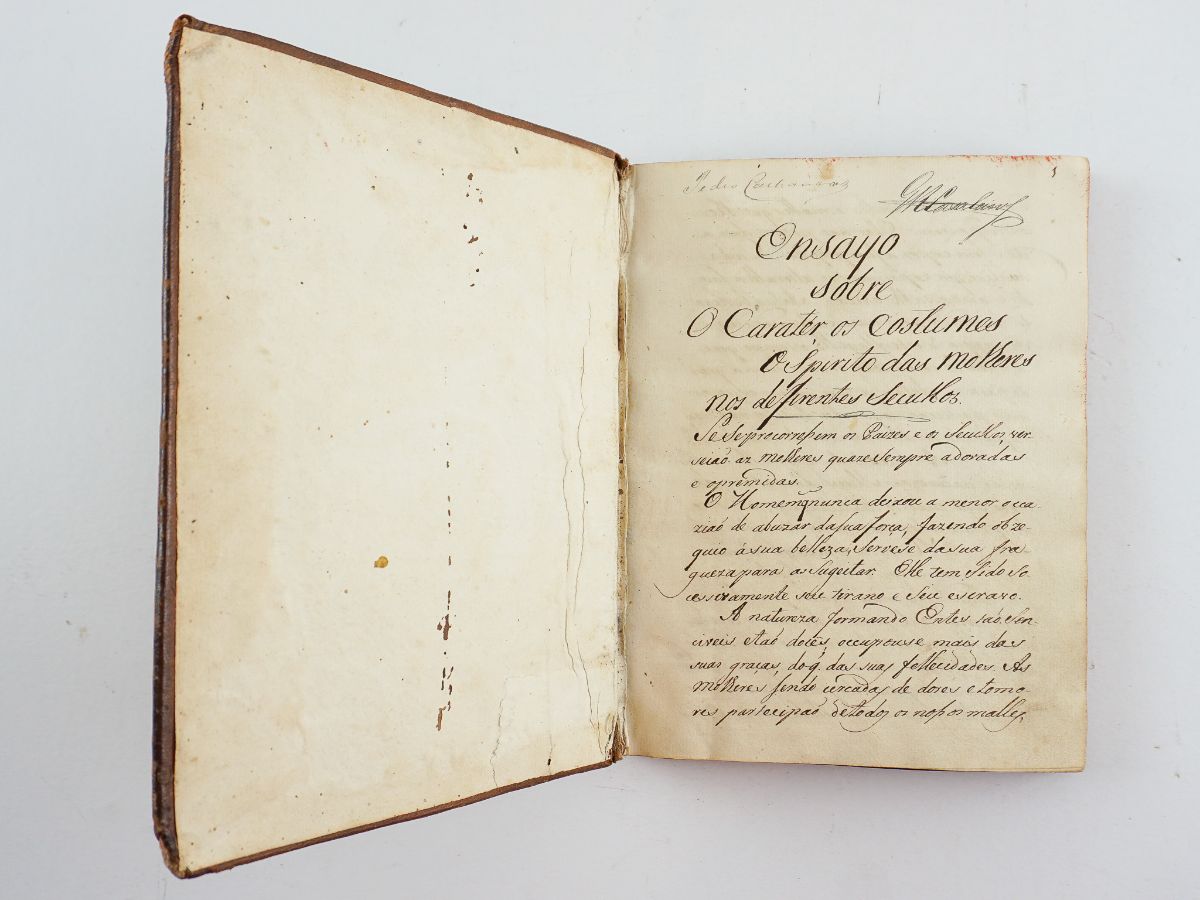 Pedro
1
Ensayo
sobre
O Caratér, os costumes
O Spirito das molheres
nos defirentes Secullos.
Se Se procorrerem os Paizes e os Secullos, ver-
seiaõ as molheres quaze Sempre adoradas
e opremidas.
O Homem q nunca deixou a menor occa-
ziaõ de abuzar da Sua força, fazendo obze-
quio á sua belleza, Serve se da sua fra
queza para as Sugeitar. Elle tem Sido So-
cessivamente seu tirano e Seu escravo.
A natureza formando Entes taõ Sen-
civeis e taõ doces, occupouse mais das
suas graças, do q. das suas fellecidades. As
molheres Sendo cercadas de dores e temo-
res partecipaõ de todos os nossos malles,